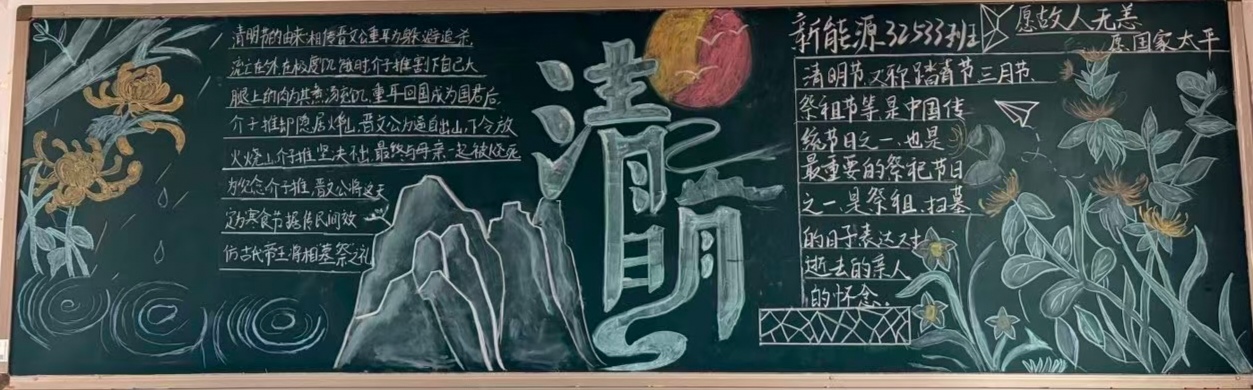 清明节的由来:相传晋文公重耳为躲避追杀
流亡在外在极度饥饿时介子推割下自己大
腿上的肉为其煮汤充饥,重耳回国成为国君后,
介子推却隐居 晋文公为逼自出山,下令放
火烧山介子推坚决不出,最终与母亲一起被烧死
为纪念介子推,晋文公将这天
定为寒食节据传民间效
仿古代帝王将相墓祭之礼
清明
新能源32533班
愿故人无恙
愿国家太平
清明节又称踏青节三月节
祭祖节等是中国传
统节日之一,也是
最重要的祭祀节日
之一,是祭祖、扫墓
的日子表达对
逝去的亲人
的怀念。